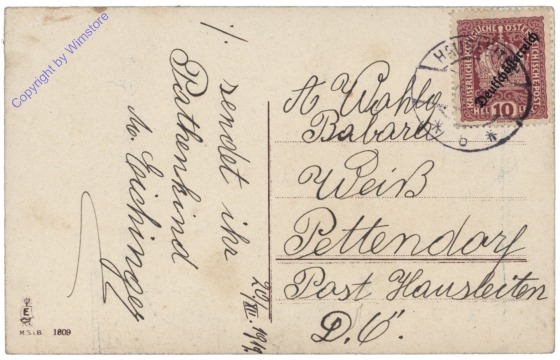 Copyright by Wimstore
/. sendet ihr
Pathenkind
Eichinger
20/XII. 1919
KAISERLICHE KÖNIGLICHE ÖSTERREICHISCHE POST
Deutschösterreich
HELLER 10
A Wohlg
Babara
Weiß
Pettendorf
Post Hausleiten
D. Ö.
E
M.S.i.B. 1809